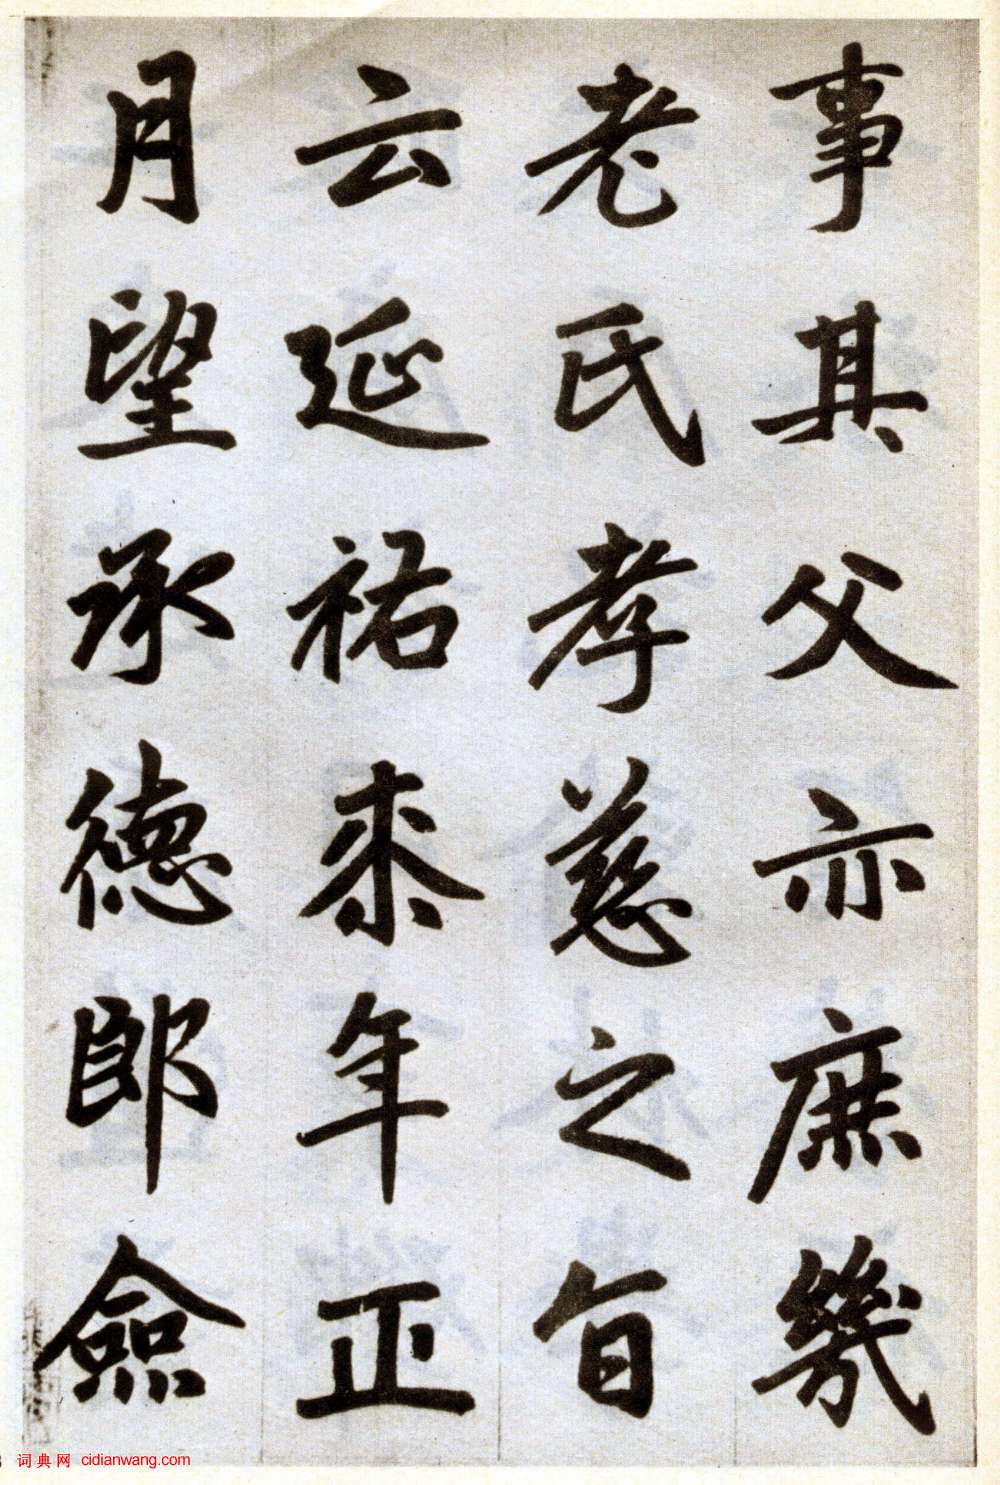 事其父亦庶幾
老氏孝慈之旨
云延祐来年正
月望承德郎僉
词典网 cidianwang.com